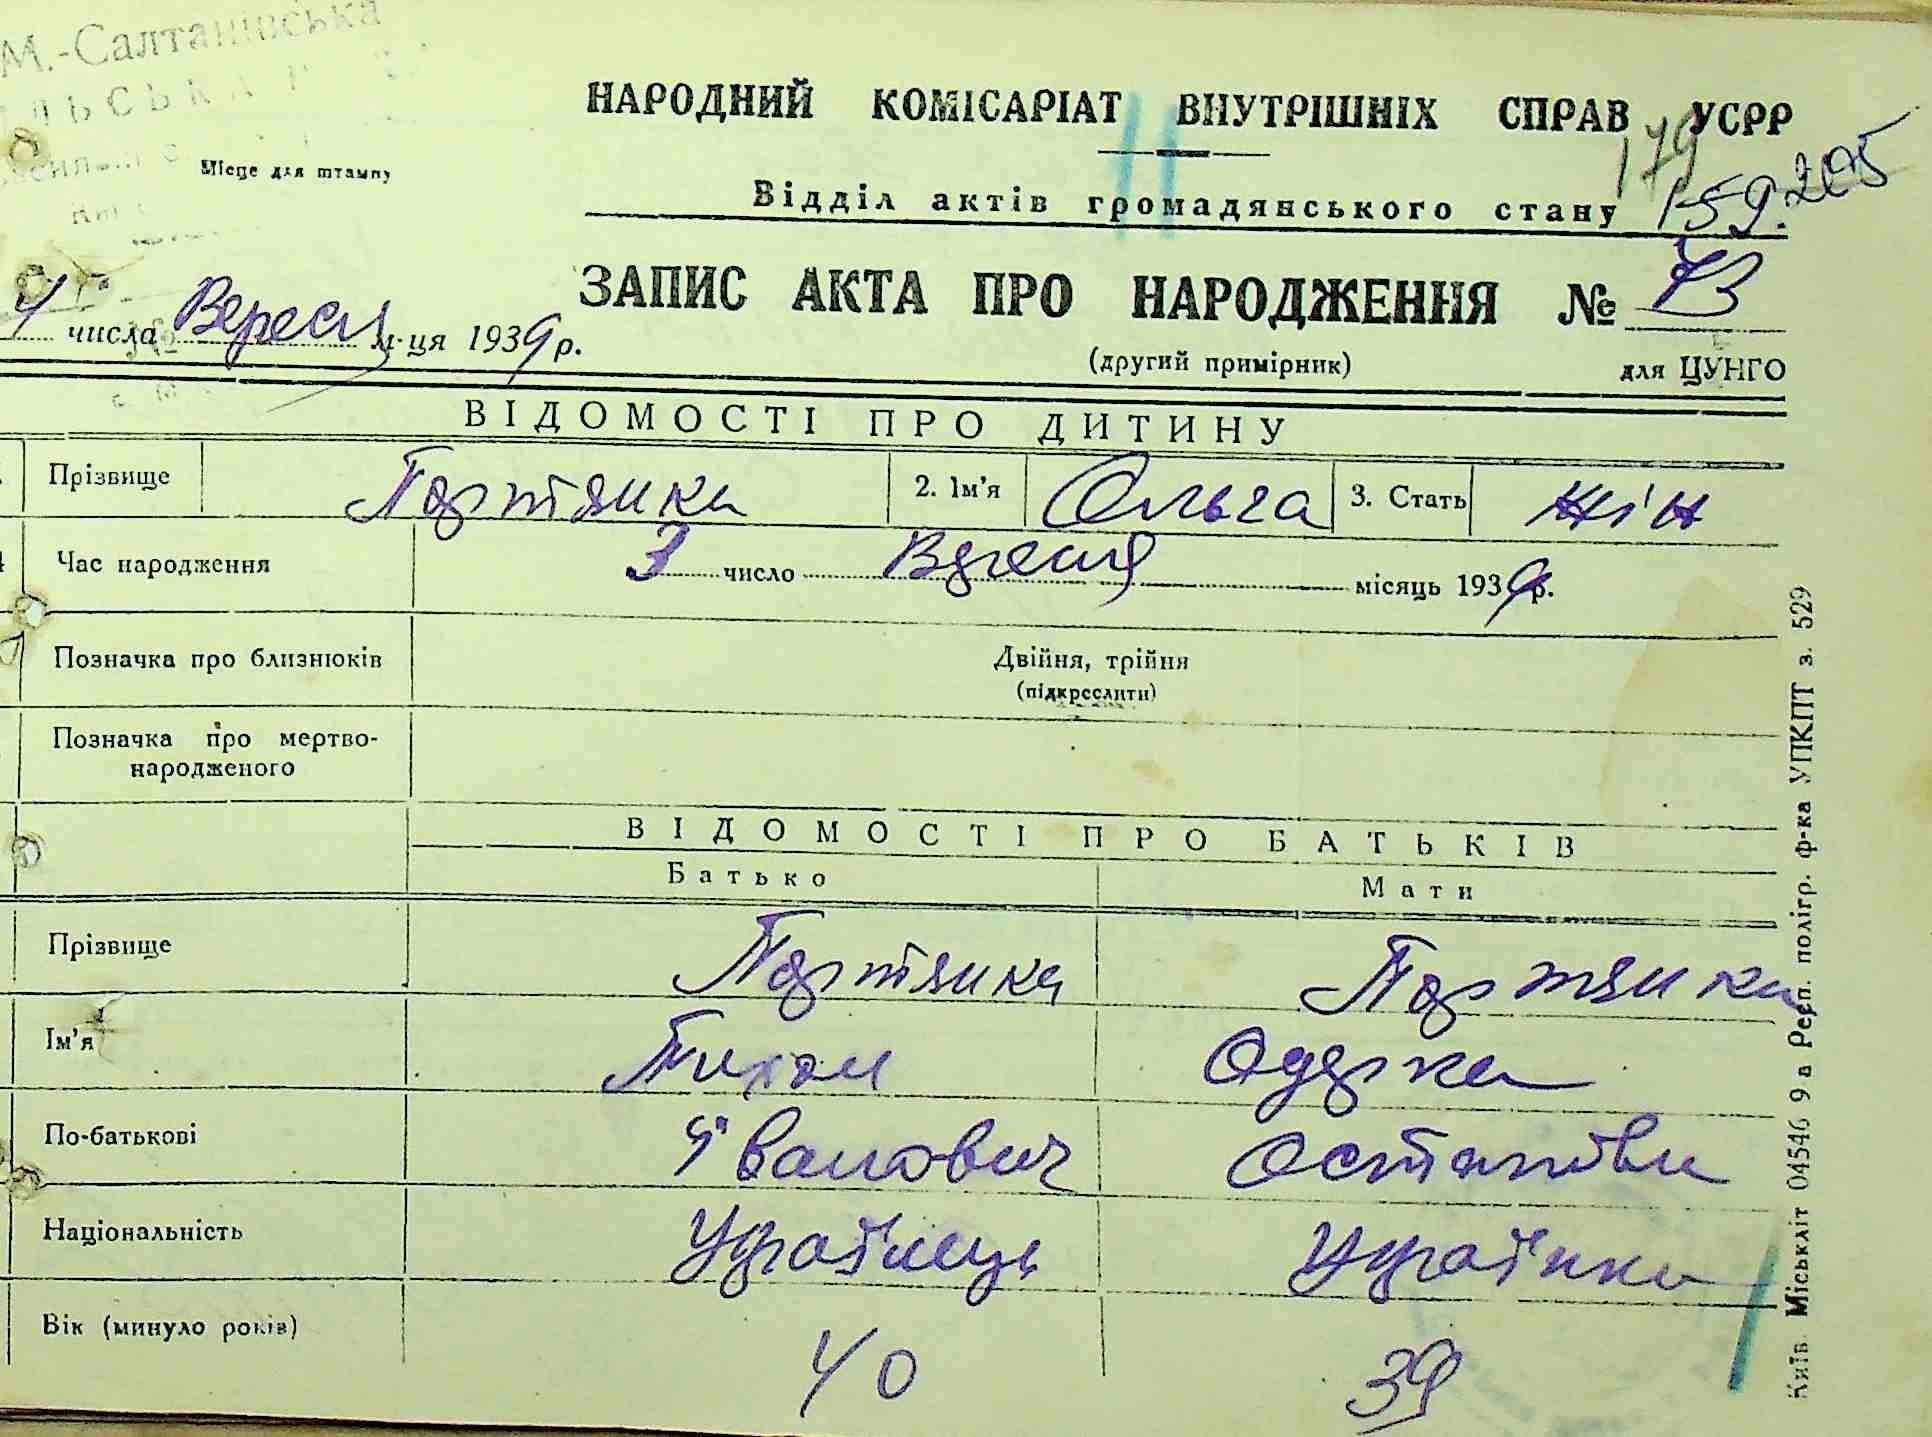 М.-Салтанівська
Місце для штампу
НАРОДНИЙ КОМІСАРІАТ ВНУТРІШНІХ СПРАВ УСРР
179
Відділ актів громадянського стану 159. 205
4 числа Вересня м-ця 1939 р.
ЗАПИС АКТА ПРО НАРОДЖЕННЯ № 73
(другий примірник) для ЦУНГО
ВІДОМОСТІ ПРО ДИТИНУ
Прізвище Портянка 2. Ім'я Ольга 3. Стать жін
Час народження 3 число Вересня місяць 1939 р.
Позначка про близнюків Двійня, трійня
(підкреслити)
Позначка про мертво-
народженого
ВІДОМОСТІ ПРО БАТЬКІВ
Батько Мати
Прізвище Портянка Портянка
Ім'я Тихон Одарка
По-батькові Іванович Остапівна
Національність Українець Українка
Вік (минуло років) 40 39
Київ. Міськліт 04546 9 а Респ. полігр. ф-ка УПКПТ з. 529